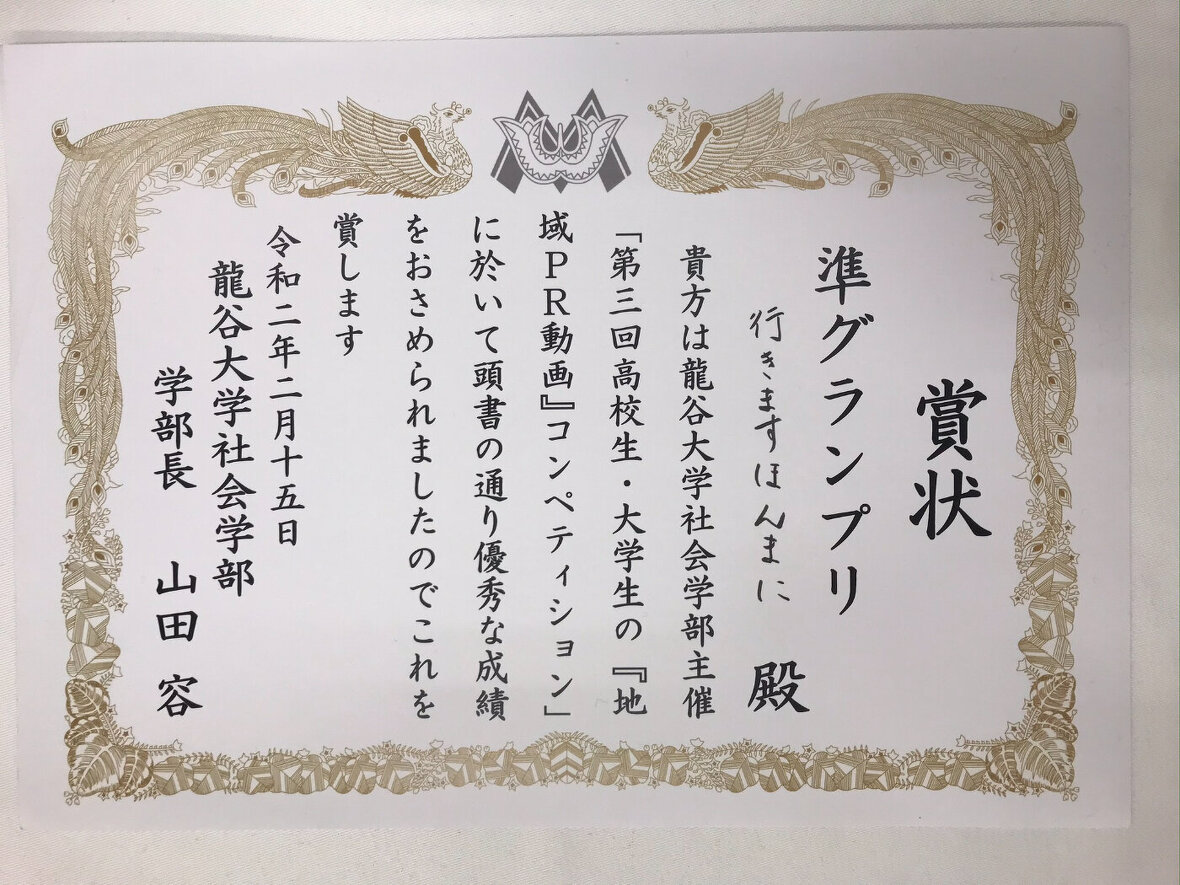 賞状
準グランプリ
行きますほんまに 殿
貴方は龍谷大学社会学部主催
「第三回高校生・大学生の『地
域PR動画』コンペティション」
に於いて頭書の通り優秀な成績
をおさめられましたのでこれを
賞します
令和二年二月十五日
龍谷大学社会学部
学部長 山田 容